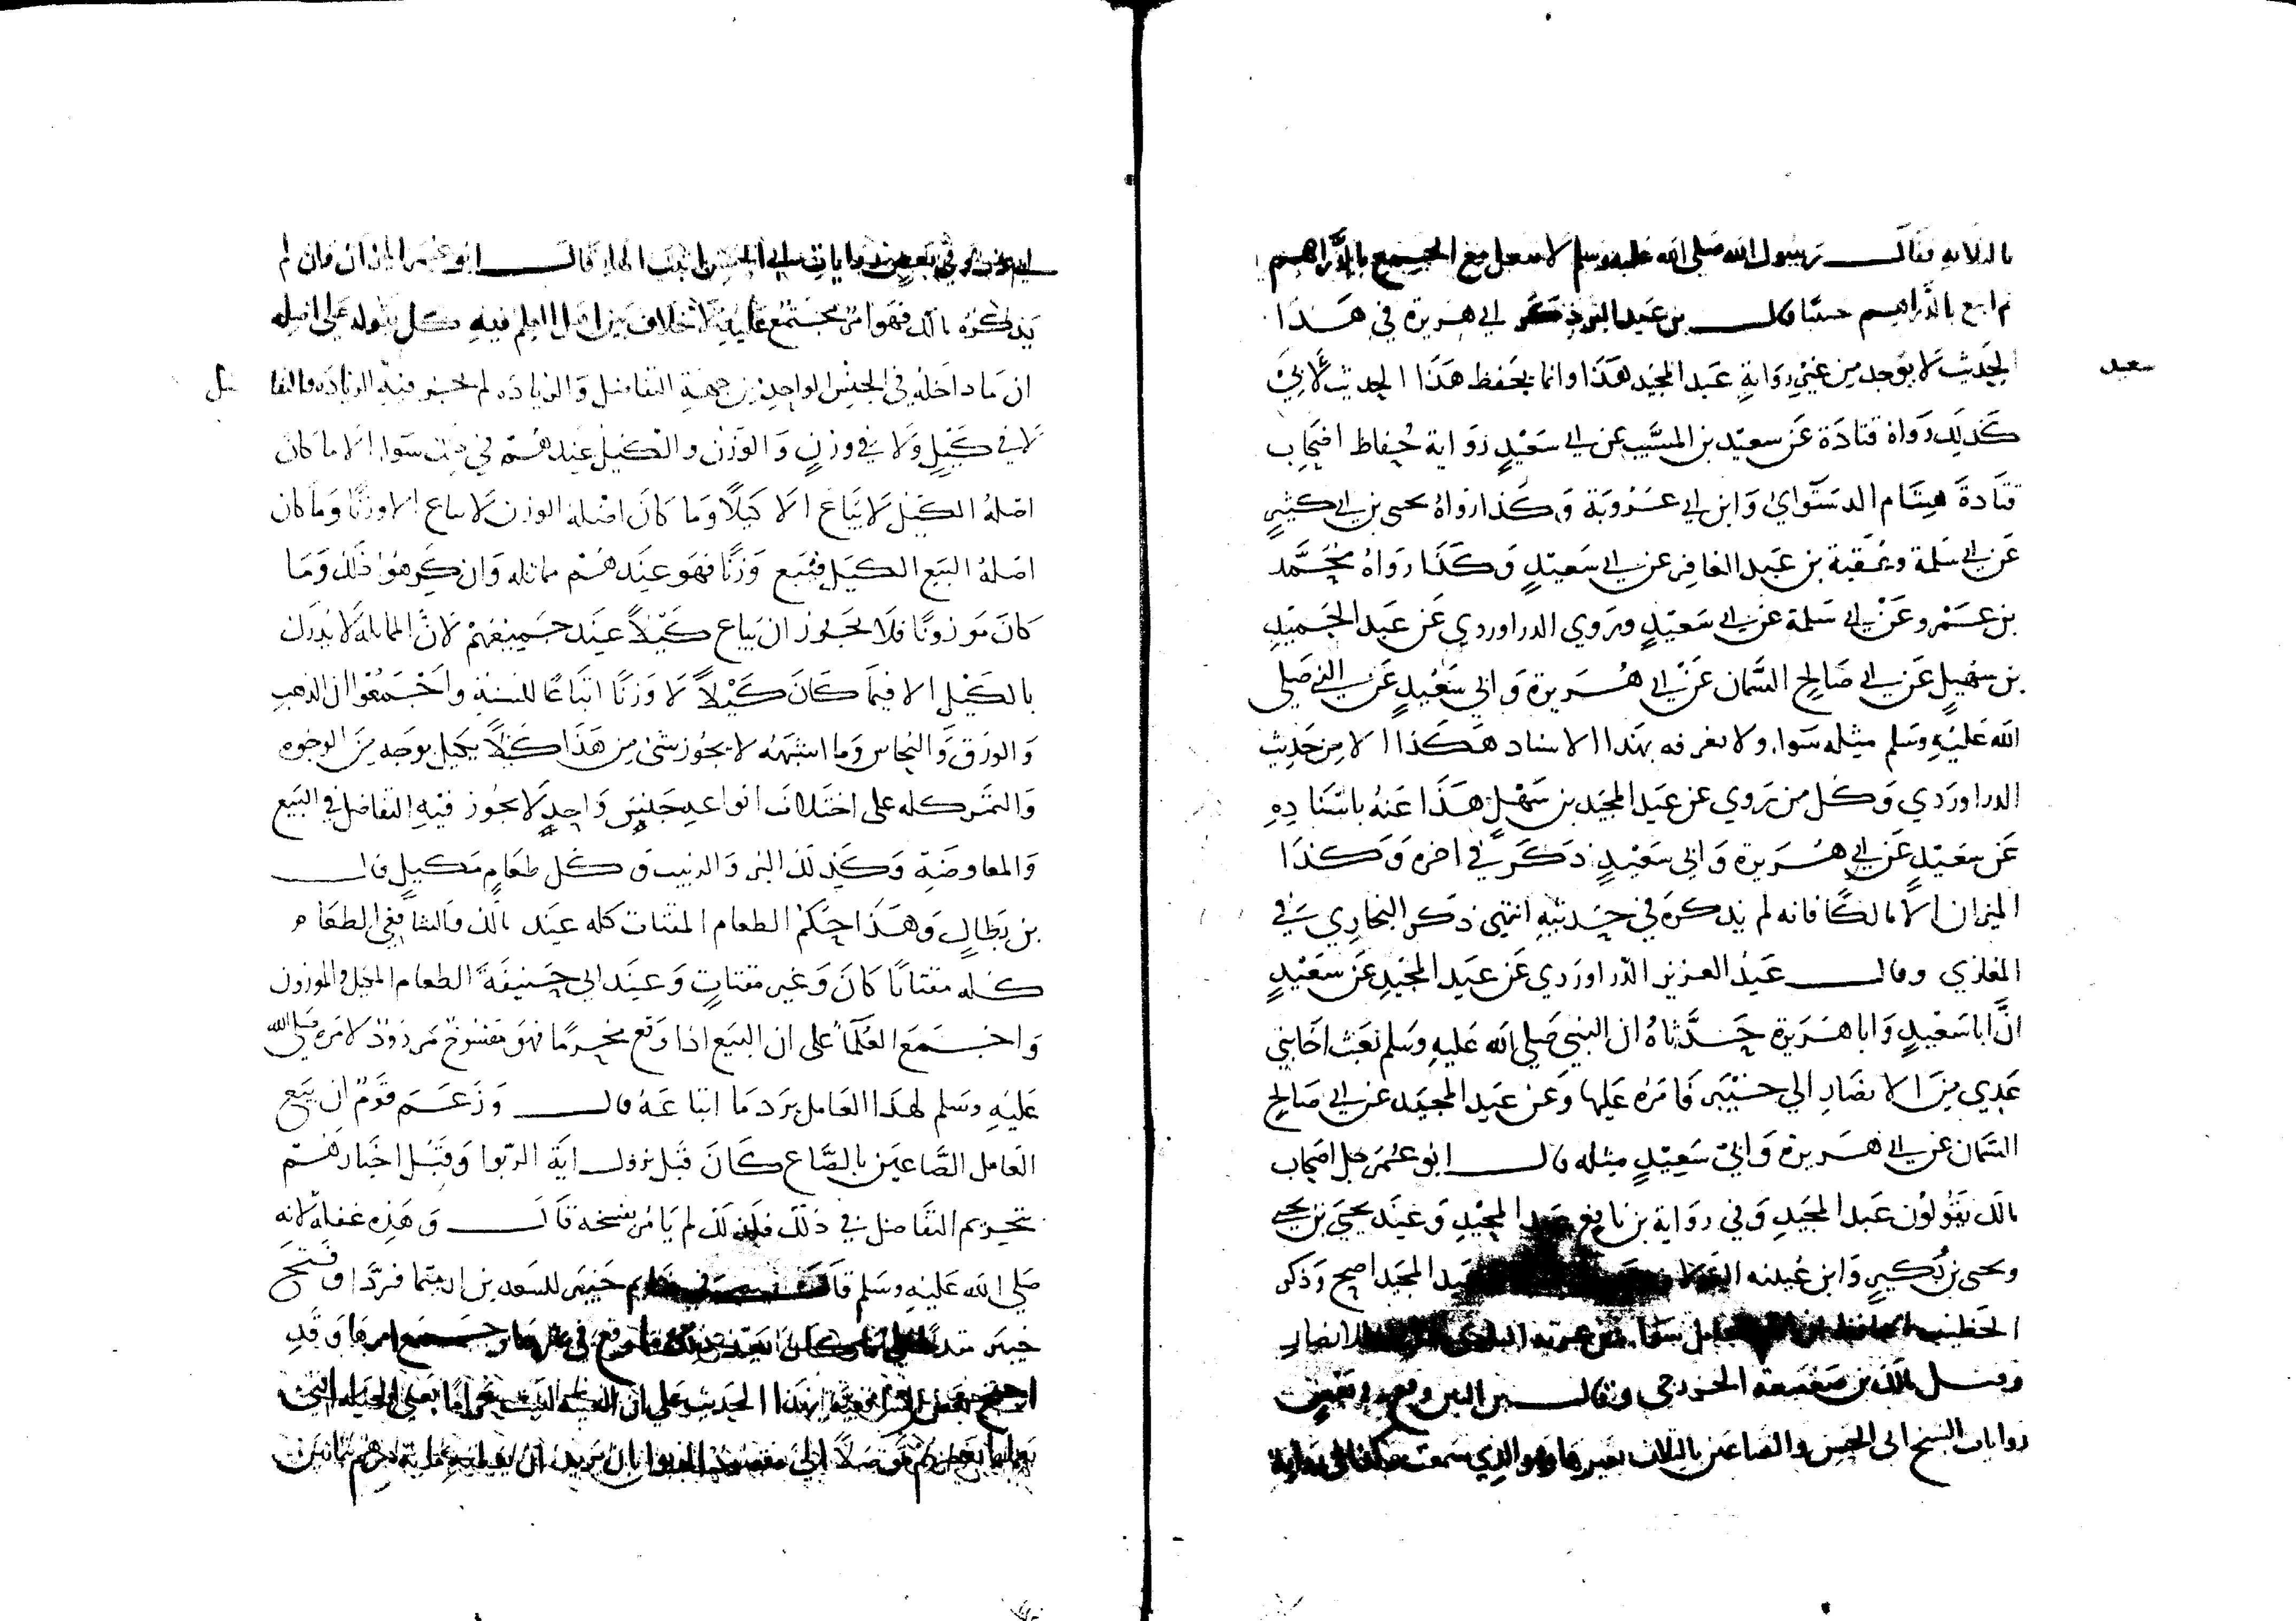 بالثلاثة فقال رسول الله صلى الله عليه وسلم لا تفعل بع الجميع بالدراهم
ثم ابع بالدراهم جنيبا قال بن عبد البر ذكر ابي هريرة في هذا
الحديث لا يوجد من غير رواية عبد المجيد هذا وانما يحفظ هذا الحديث لابي
سعيد
كذلك رواه قتادة عن سعيد بن المسيب عن ابي سعيد رواية حفاظ اصحاب
قتادة هشام الدستوائي وابن ابي عروبة وكذا رواه يحيى بن ابي كثير
عن ابي سلمة وعقبة بن عبد الغافر عن ابي سعيد وكذا رواه محمد
بن عمرو عن ابي سلمة عن ابي سعيد وروي الدراوردي عن عبد الحميد
بن سهيل عن ابي صالح السمان عن ابي هريرة وابي سعيد عن النبي صلى
الله عليه وسلم مثله سواء ولا نعرفه بهذا الاسناد هكذا الا من حديث
الدراوردي وكل من يروي عن عبد المجيد بن سهل هذا عنه باسناده
عن سعيد عن ابي هريرة وابي سعيد ذكر في اخره وكذا
الميزان الا مالكا فانه لم يذكره في حديثه انتهى ذكر البخاري في
المغازي وقال عبد العزيز الدراوردي عن عبد المجيد عن سعيد
ان ابا سعيد وابا هريرة حدثاه ان النبي صلى الله عليه وسلم بعث اخا بني
عدي من الانصار الي خيبر فامره عليها وعن عبد المجيد عن ابي صالح
السمان عن ابي هريرة وابي سعيد مثله قال ابو عمر جل اصحاب
مالك يقولون عبد المجيد وفي رواية بن نافع عبد المجيد وعند يحيى بن يحيى
ويحيى بن بكير وابن عيينه عبد المجيد اصح وذكر
الخطيب
وقيل مالك بن صعصعة الخزرجي وقال بن التين وقع في بعض
روايات الشيخ ابي الحسن والصاعين بالثلاث بغير هاء وهو الذي سمعت
قال ابو عمر الميزان وان لم
يذكره مالك فهو امر مجتمع عليه لا خلاف بين اهل العلم فيه كل يقوله على اصله
ان ما داخله في الجنس الواحد من جهة التفاضل والزيادة لم تجز فيه الزيادة والتفاضل
لا في كيل ولا في وزن والوزن والكيل عندهم في ذلك سواء الا ما كان
اصله الكيل لا يباع الا كيلا وما كان اصله الوزن لا يباع الا وزنا وما كان
اصله البيع الكيل فبيع وزنا فهو عندهم مماثله وان كرهوا ذلك وما
كان موزونا فلا يجوز ان يباع كيلا عند جميعهم لان المماثلة لا تدرك
بالكيل الا فيما كان كيلا لا وزنا اتباعا للسنة واجمعوا ان الذهب
والورق والنحاس وما اشبهه لا يجوز شئ من هذا كيلا بكيل بوجه من الوجوه
والتمر كله على اختلاف انواعه جنس واحد لا يجوز فيه التفاضل في البيع
والمعاوضة وكذلك البر والزبيب وكل طعام مكيل قال
بن بطال وهذا حكم الطعام المقتات كله عند مالك والشافعي الطعام
كله مقتاتا كان وغير مقتات وعند ابي حنيفة الطعام المكيل والموزون
واجمع العلماء على ان البيع اذا وقع محرما فهو مفسوخ مردود لامره صلى الله
عليه وسلم لهذا العامل برد ما ابتاعه قال وزعم قوم ان بيع
العامل الصاعين بالصاع كان قبل نزول اية الربوا وقبل اخبارهم
تحريم التفاضل في ذلك فلذلك لم يامر بفسخه قال وهذه غفلة لانه
صلى الله عليه وسلم قال في خيبر للسعدين اربيتما فردا وفتح
خيبر
احتج بعض بهذا الحديث على ان العينة ليست حراما يعني الحيلة التي
يعملها بعضهم توصلا الى مقصود الربوا بان يريد ان يعطيه ماية درهم بمائتين